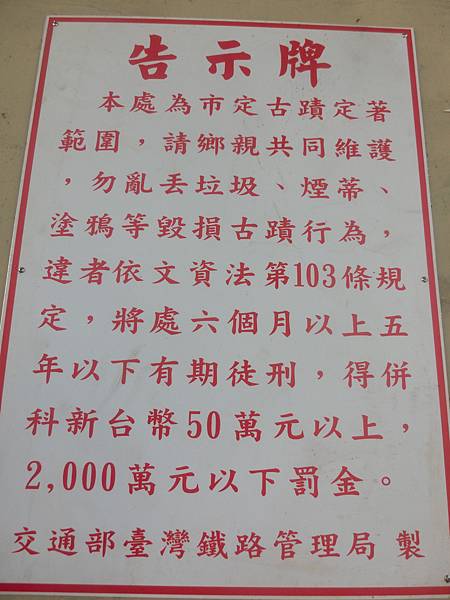 告示牌
本處為市定古蹟定著
範圍，請鄉親共同維護
，勿亂丟垃圾、煙蒂、
塗鴉等毀損古蹟行為，
違者依文資法第103條規
定，將處六個月以上五
年以下有期徒刑，得併
科新台幣50萬元以上，
2,000萬元以下罰金。
交通部臺灣鐵路管理局 製